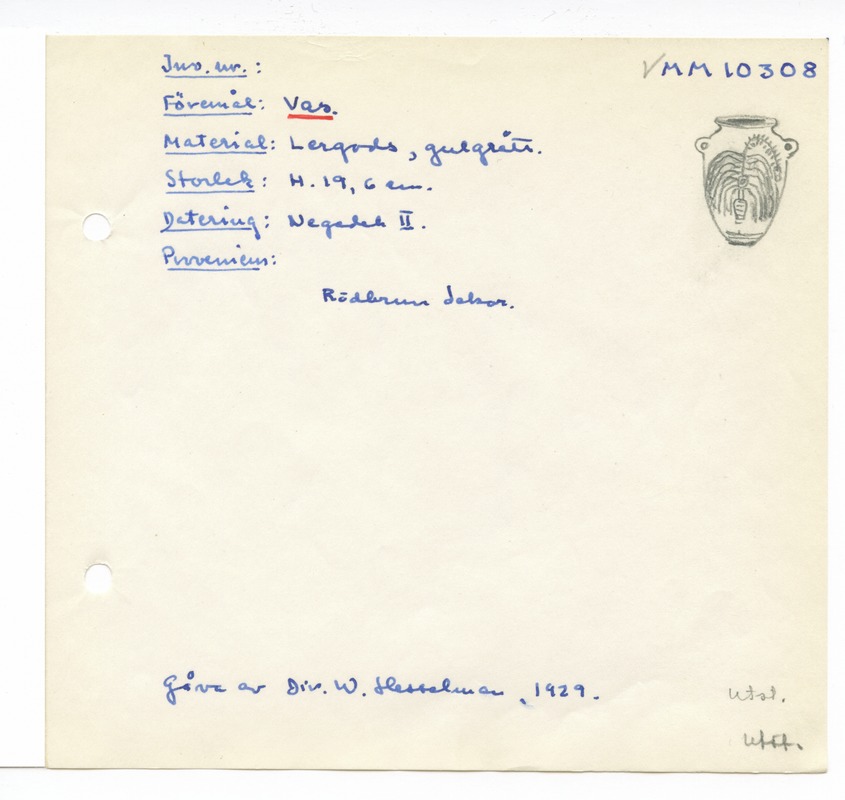 Inv. nr.:
MM 10308
Föremål: Vas.
Material: Lergods, gulgrått.
Storlek: H. 19,6 cm.
Datering: Negadeh II.
Proveniens:
Rödbrun dekor.
Gåva av Dir. W. Hesselman, 1929.
utst.
utst.